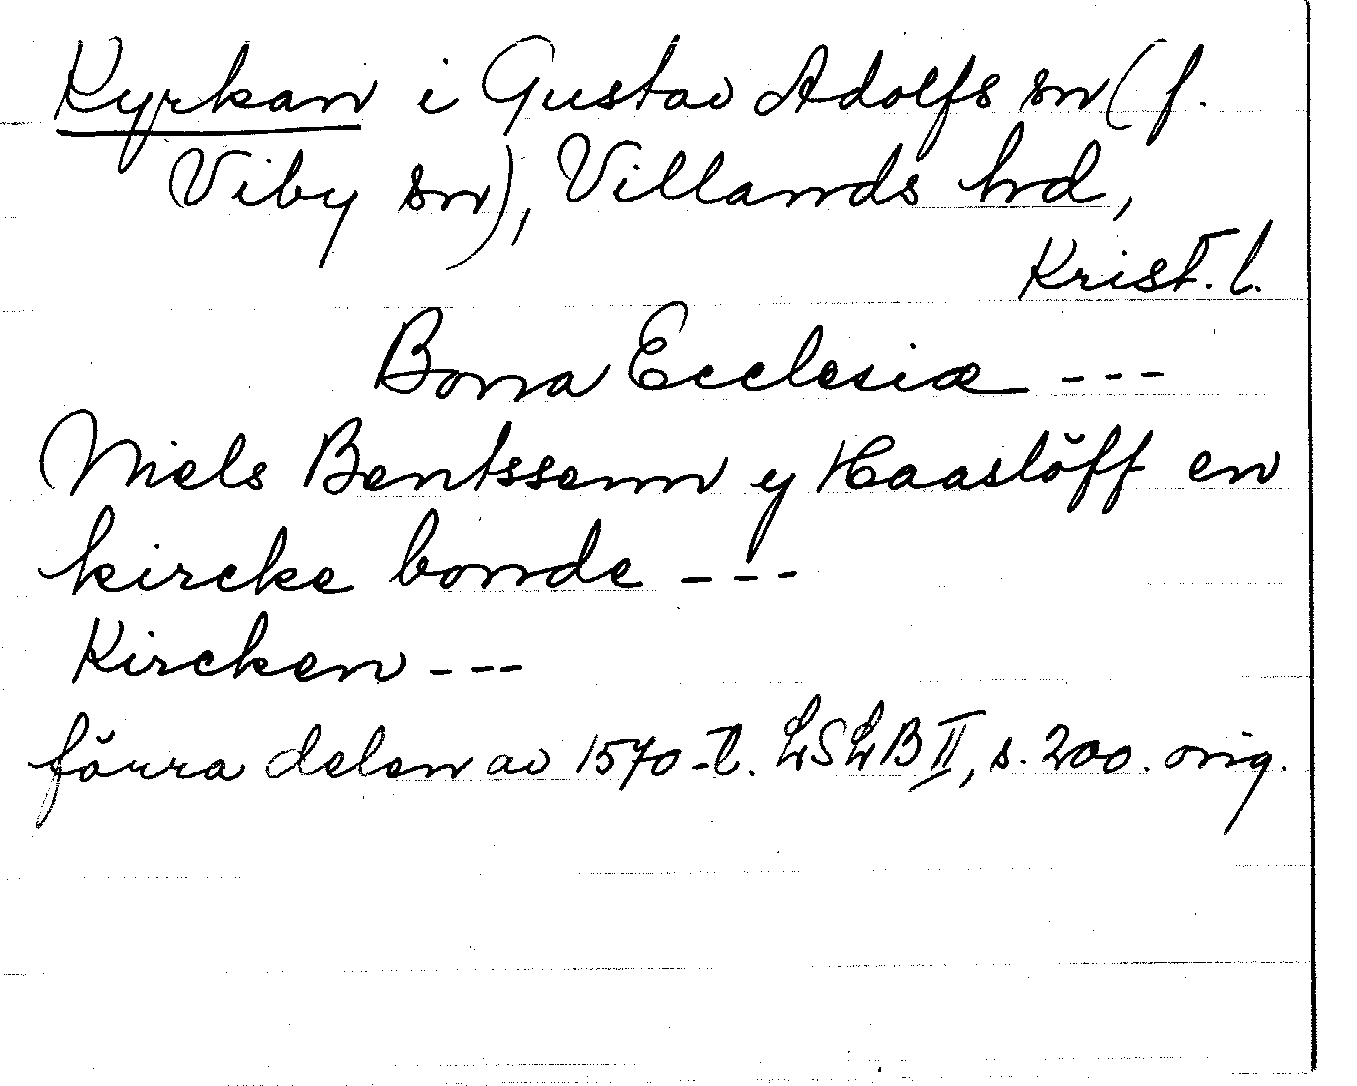 Kyrkan i Gustav Adolfs sn (f.
Viby sn), Villands hd,
Krist. l.
Bona Ecclesiæ ---
Niels Bentssenn y Haaslöff en
kircke bonde ---
Kircken ---
förra delen av 1570-t. LSLB II, s. 200. orig.